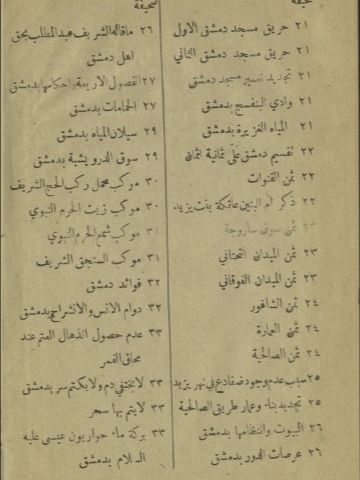 صحيفة
٢١ حريق مسجد دمشق الاول
٢١ حريق مسجد دمشق الثاني
٢١ تجديد تعمير مسجد دمشق
٢١ وادي البنفسج بدمشق
٢١ المياه الغزيرة بدمشق
٢٢ تقسيم دمشق على ثمانية اثمان
٢٢ ثمن القنوات
٢٢ ذكر ام البنين عاتكة بنت يزيد
ثمن سوق ساروجة
٢٣ ثمن الميدان التحتاني
٢٣ ثمن الميدان الفوقاني
٢٤ ثمن الشاغور
٢٤ ثمن العمارة
٢٤ ثمن الصالحية
٢٥ سبب عدم وجود ضفادع في نهر يزيد
٢٥ تجديد بناء وعمار طريق الصالحية
٢٦ البيوت وانتظامها بدمشق
٢٦ عرصات الدور بدمشق
صحيفة
٢٦ ما قاله الشريف عبد المطلب بحق
اهل دمشق
٢٧ الفصول الاربعة واحكامها بدمشق
٢٧ الحمامات بدمشق
٢٩ سيلان المياه بدمشق
٢٩ سوق الدرويشية بدمشق
٣٠ موكب محمل ركب الحج الشريف
٣٠ موكب زيت الحرم النبوي
٣١ موكب شمع الحرم النبوي
٣١ موكب السنجق الشريف
٣٢ فوائد دمشق
٣٢ دوام الانس والانشراح بدمشق
٣٣ عدم حصول انذهال العتم عند
محاق القمر
٣٣ لا يختفي دم ولا يكتم سر بدمشق
٣٣ لا يتم بها سحر
٣٣ بركة ماء حواريون عيسى عليه
السلام بدمشق